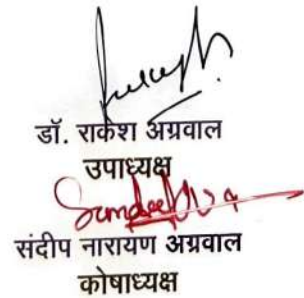 डॉ. राकेश अग्रवाल
उपाध्यक्ष
संदीप नारायण अग्रवाल
कोषाध्यक्ष